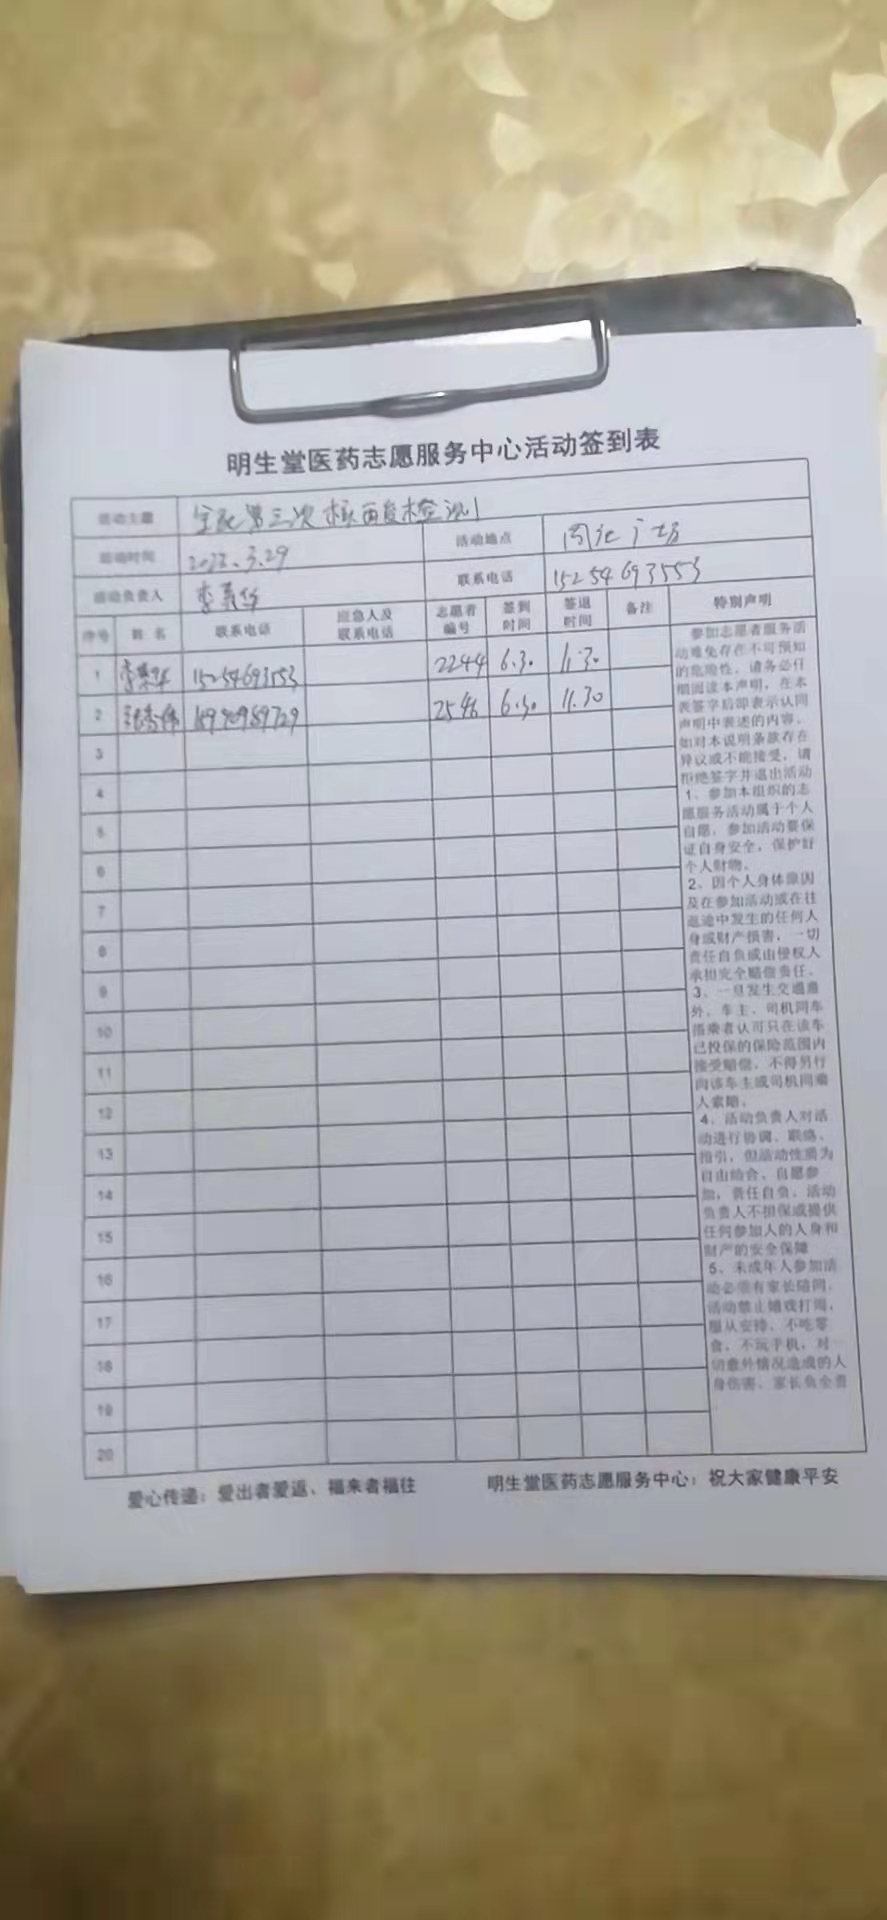 明生堂医药志愿服务中心活动签到表
活动主题 全民第三次核酸检测
活动时间 2022.3.29 活动地点 广场
活动负责人 李 联系电话 15254693553
序号 姓名 联系电话 应急人及联系电话 志愿者编号 签到时间 签退时间 备注 特别声明
1 李 15254693553 2244 6.30 11.30
2 2546 6.30 11.30
3
4
5
6
7
8
9
10
11
12
13
14
15
16
17
18
19
20
参加志愿者服务活
动难免存在不可预知
的危险性，请务必仔
细阅读本声明，在本
表签字后即表示认同
声明中表述的内容。
如对本说明条款存在
异议或不能接受，请
拒绝签字并退出活动
1、参加本组织的志
愿服务活动属于个人
自愿，参加活动要保
证自身安全，保护好
个人财物。
2、因个人身体原因
及在参加活动或在往
返途中发生的任何人
身或财产损害，一切
责任自负或由侵权人
承担完全赔偿责任。
3、一旦发生交通意
外，车主、司机同车
搭乘者认可只在该车
已投保的保险范围内
接受赔偿，不得另行
向该车主或司机同乘
人索赔。
4、活动负责人对活
动进行协调、联络、
指引，但活动性质为
自由结合、自愿参
加，责任自负，活动
负责人不担保或提供
任何参加人的人身和
财产的安全保障
5、未成年人参加活
动必须有家长陪同，
活动禁止嬉戏打闹，
服从安排，不吃零
食，不玩手机，对一
切意外情况造成的人
身伤害，家长负全责
爱心传递：爱出者爱返、福来者福往 明生堂医药志愿服务中心：祝大家健康平安